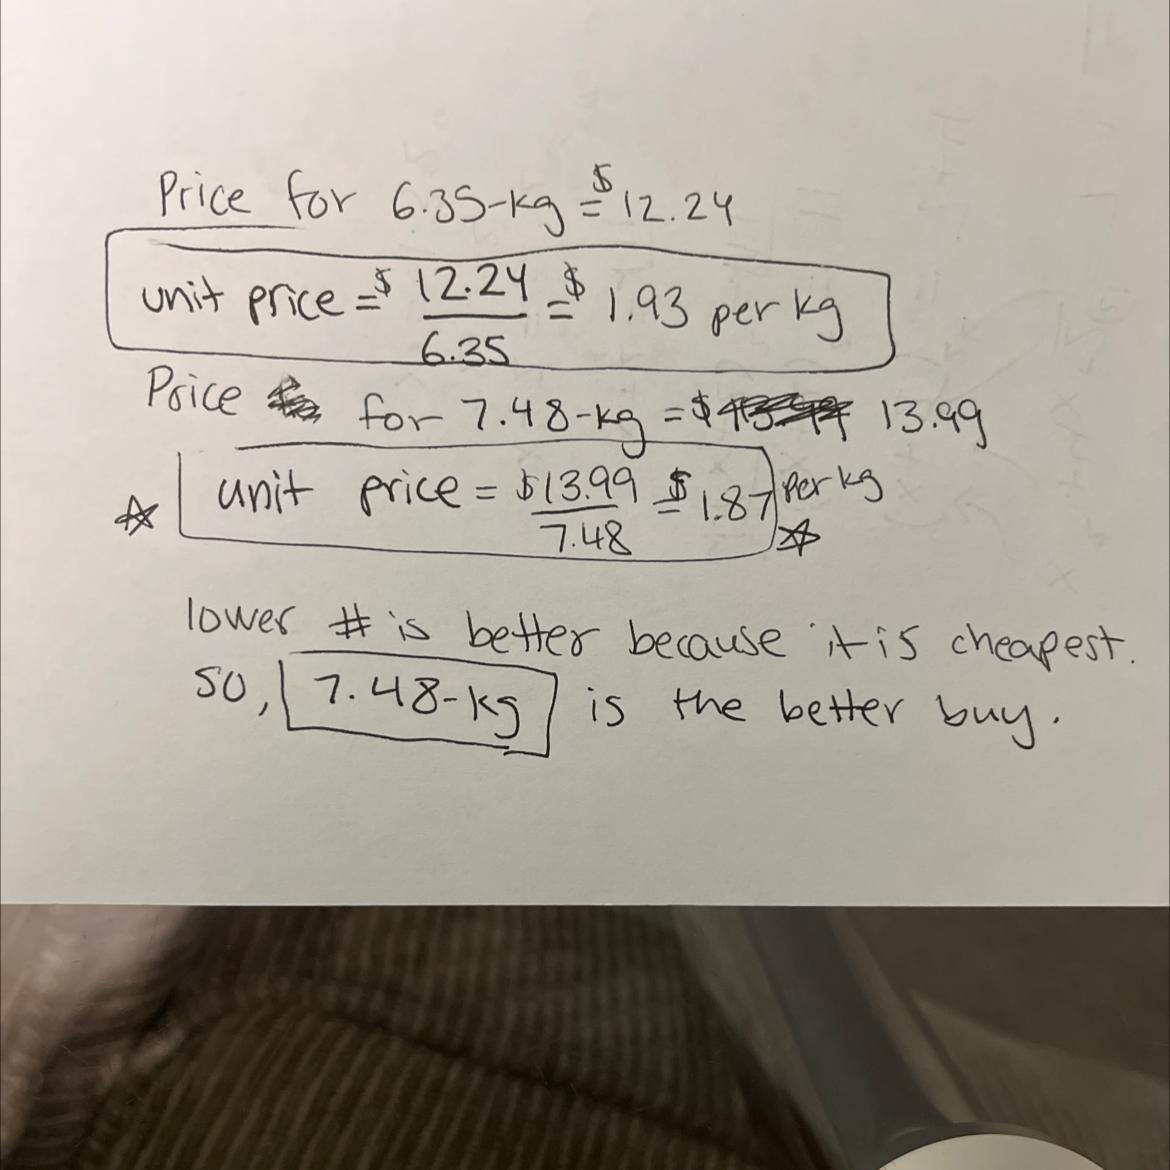 Price for 6.35-kg = $12.24
unit price = $ 12.24 / 6.35 = $ 1.93 per kg
Price for 7.48-kg = $ 13.99
unit price = $13.99 / 7.48 = $ 1.87 per kg
lower # is better because it is cheapest.
so, 7.48-kg is the better buy.